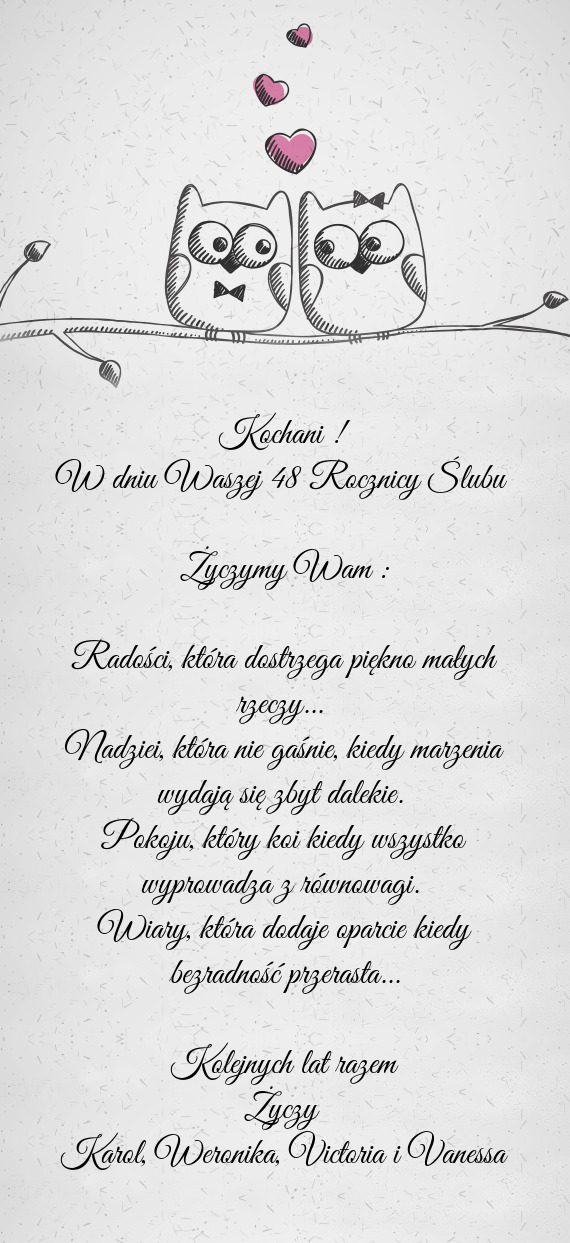 Kochani !
W dniu Waszej 48 Rocznicy Ślubu
Życzymy Wam :
Radości, która dostrzega piękno małych
rzeczy...
Nadziei, która nie gaśnie, kiedy marzenia
wydają się zbyt dalekie.
Pokoju, który koi kiedy wszystko
wyprowadza z równowagi.
Wiary, która dodaje oparcie kiedy
bezradność przerasta...
Kolejnych lat razem
Życzy
Karol, Weronika, Victoria i Vanessa